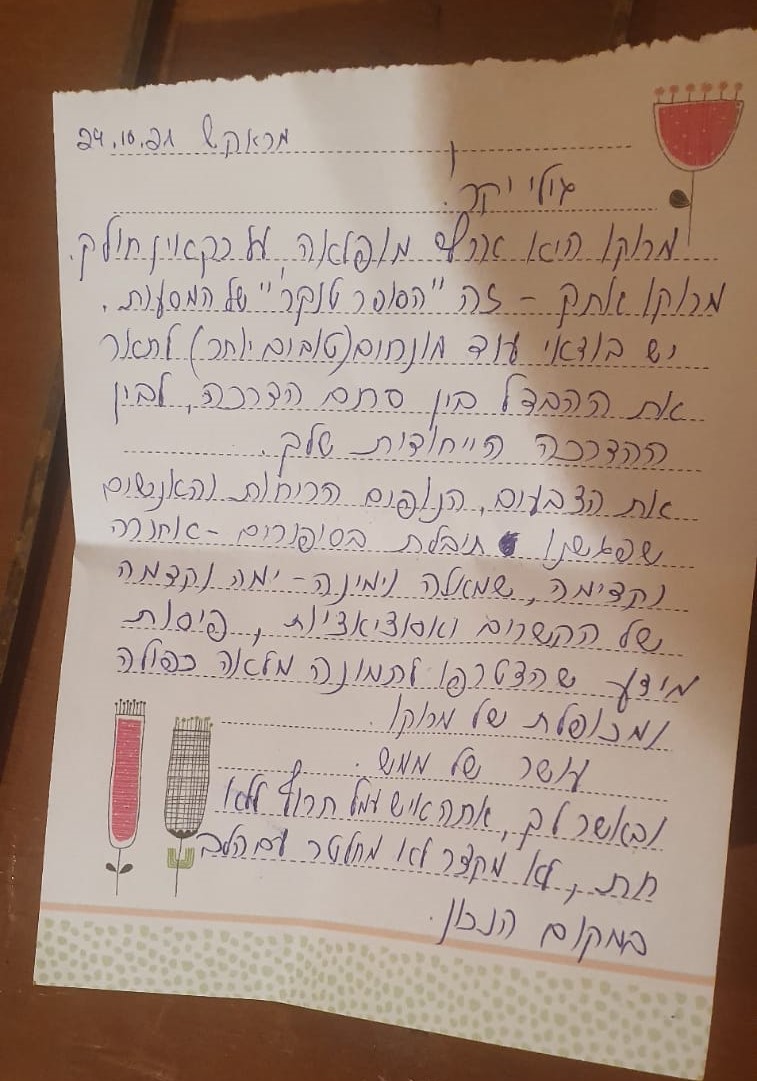 מראקש 24.10.21
גולי יקר.
מרוקו היא ארץ מופלאה על כך אין חולק.
מרוקו אתך - זה "הסופר טנקר" של המסעות.
יש בודאי עוד מונחים (טובים יותר) לתאר
את ההבדל בין סתם הדרכה, לבין
ההדרכה הייחודית שלך.
את הצבעים, הנופים הריחות והאנשים
שפגשנו תיבלת בסיפורים - אחורה
וקדימה, שמאלה וימינה - ימה וקדמה
של הקשרים ואסוציאציות, פיסות
מידע שהצטרפו לתמונה מלאה כפולה
ומכופלת של מרוקו.
עושר של ממש.
ובאשר לך, אתה איש עמל חרוץ ללא
חת, לא מקצר לא מחלטר עם הלב
במקום הנכון.